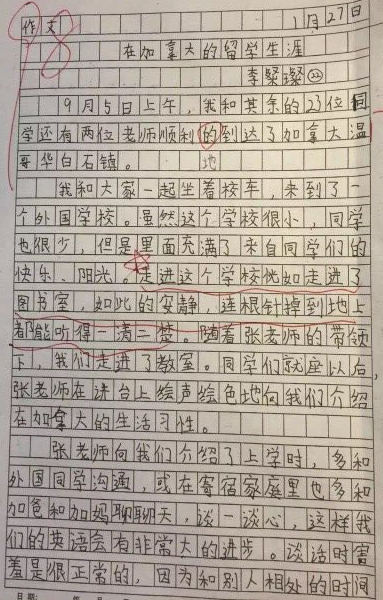 作文 98 1月27日
在加拿大的留学生涯
李璨璨㉒
9月5日上午，我和其余的23位同
学还有两位老师顺利的到达了加拿大温
地
哥华白石镇。
我和大家一起坐着校车，来到了一
个外国学校。虽然这个学校很小，同学
也很少，但是里面充满了来自同学们的
快乐、阳光。走进这个学校恍如走进了
图书室，如此的安静，连根针掉到地上
都能听得一清二楚。随着张老师的带领
下，我们走进了教室。同学们就座以后，
张老师在讲台上绘声绘色地向我们介绍
在加拿大的生活习性。
张老师向我们介绍了上学时，多和
外国同学沟通，或在寄宿家庭里也多和
加爸和加妈聊聊天，谈一谈心，这样我
们的英语会有非常大的进步。谈话时害
羞是很正常的，因为和别人相处的时间
日期：